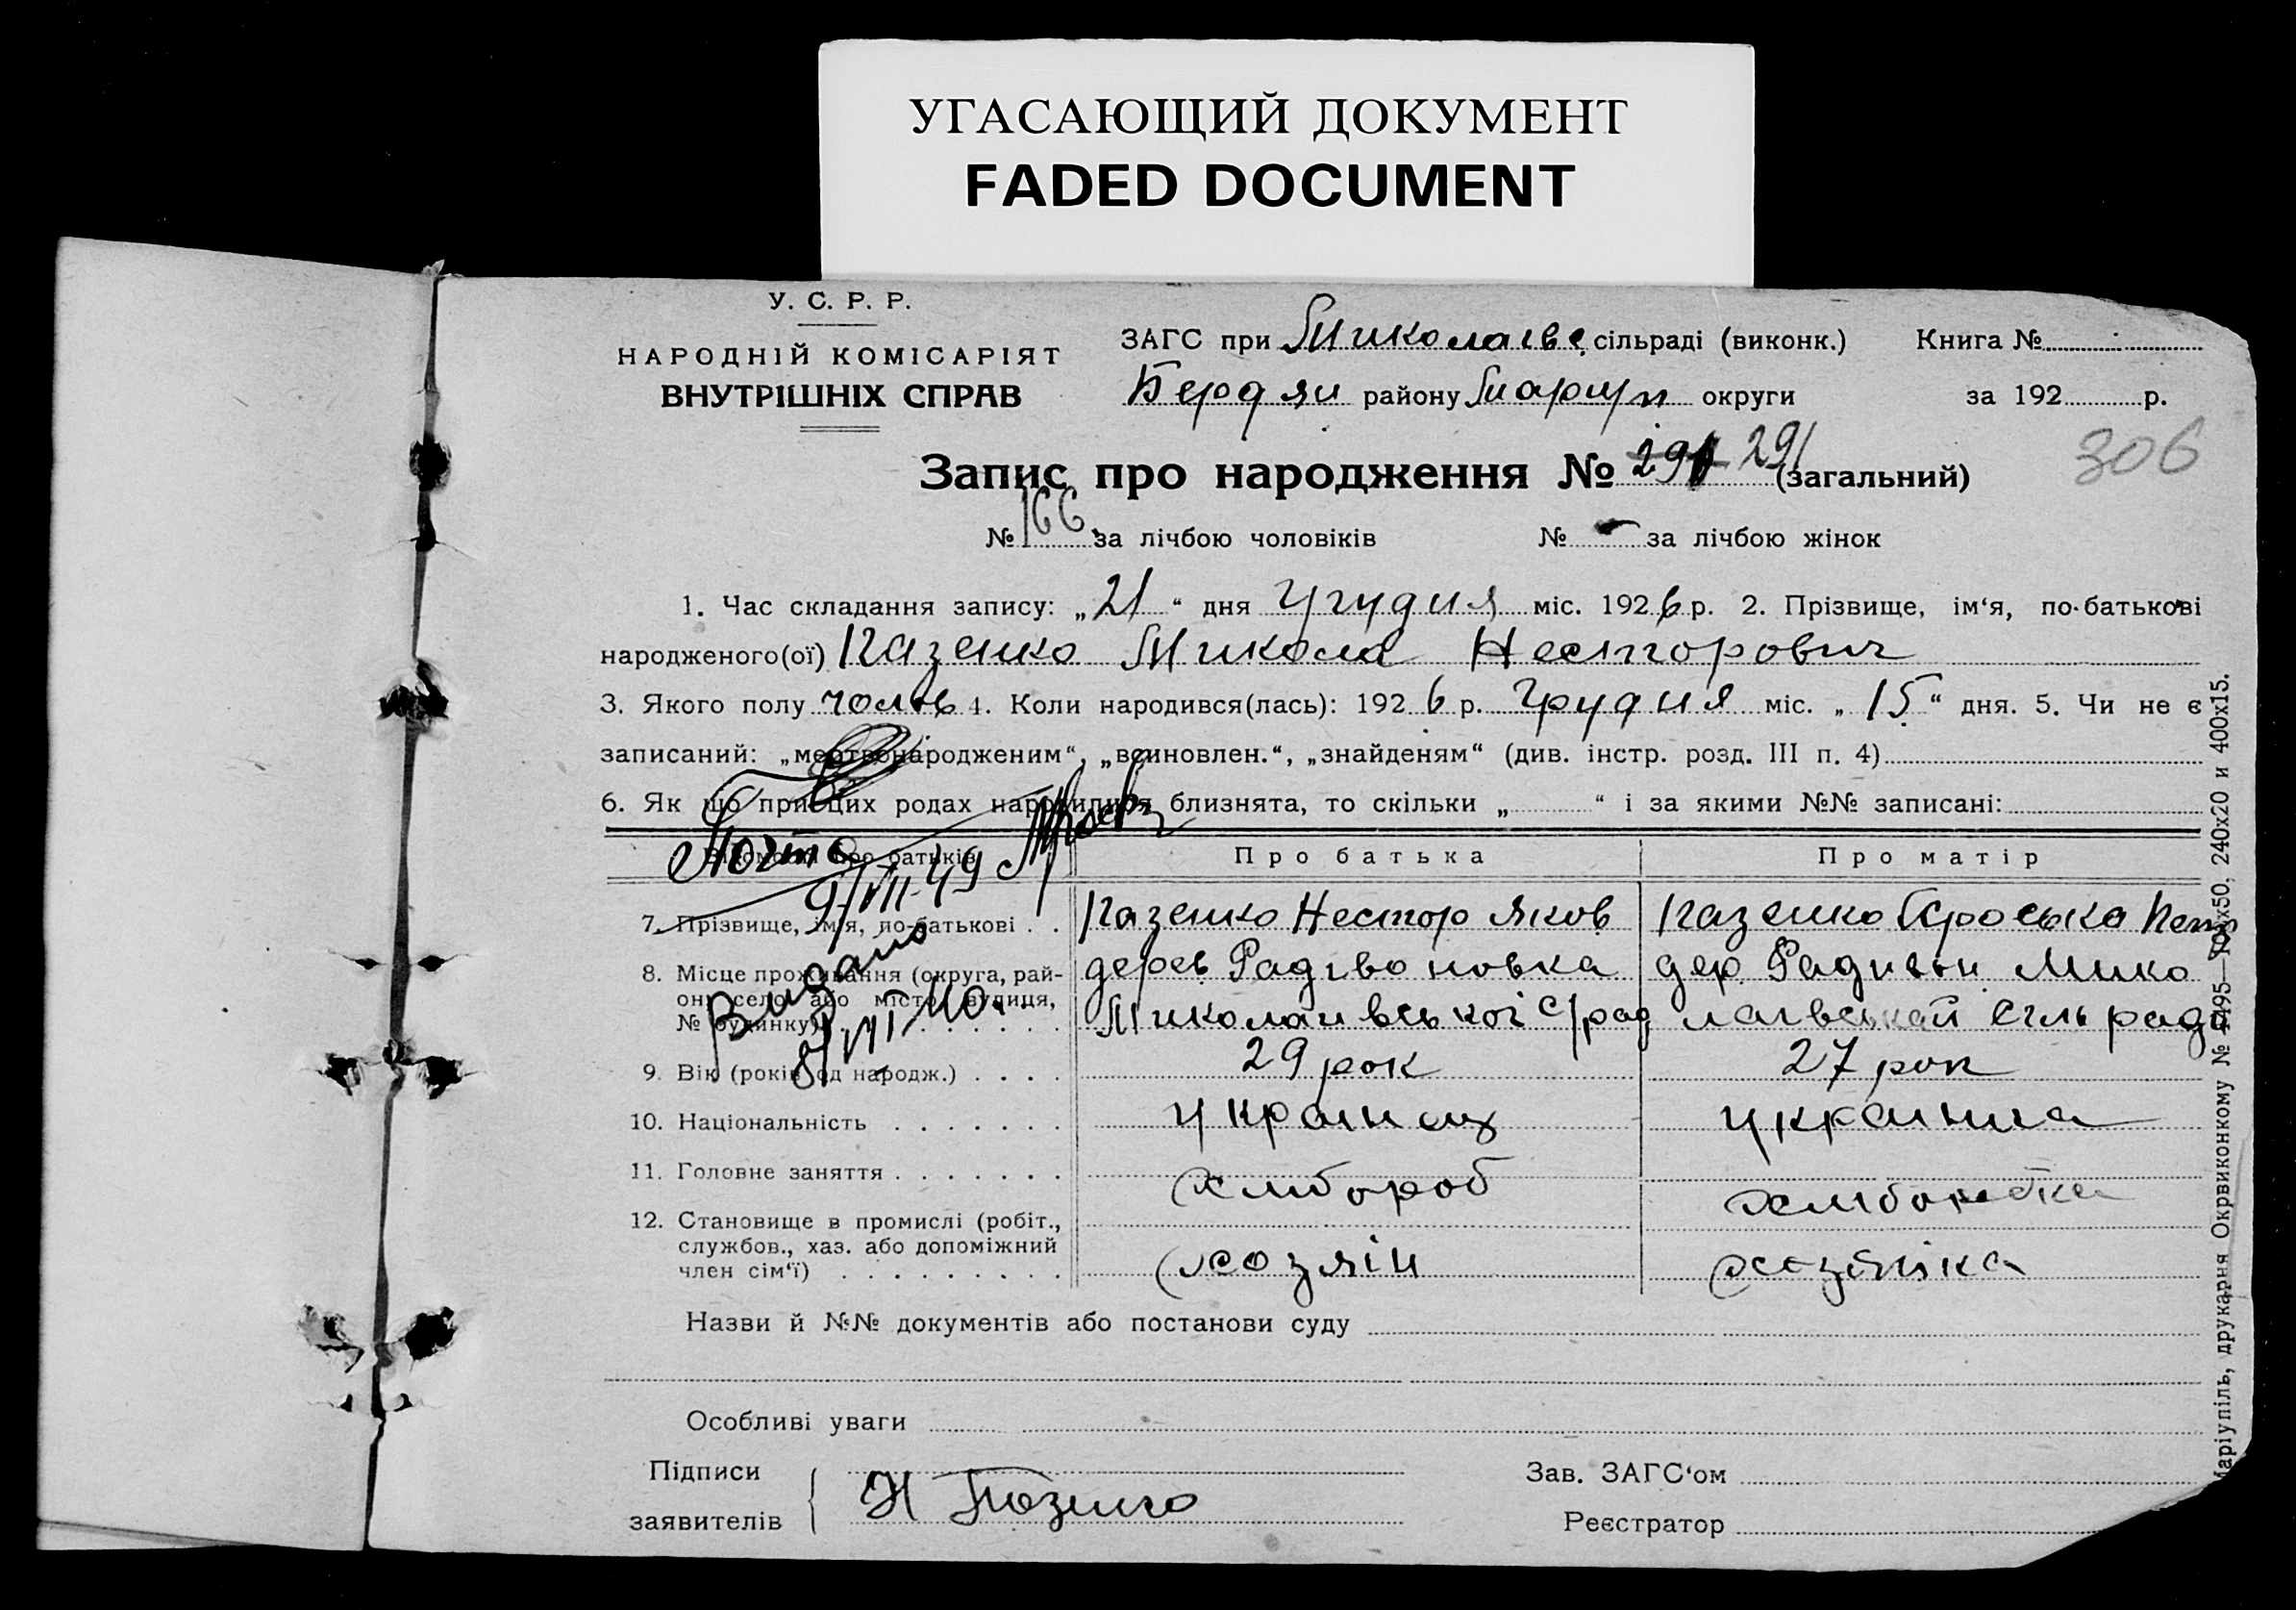 УГАСАЮЩИЙ ДОКУМЕНТ
FADED DOCUMENT
У. С. Р. Р.
НАРОДНІЙ КОМІСАРІЯТ
ВНУТРІШНІХ СПРАВ
ЗАГС при Миколаївс. сільраді (виконк.) Книга №
Бердян району Маріуп округи за 192 р.
306
Запис про народження № 291 (загальний)
№ 166 за лічбою чоловіків № - за лічбою жінок
1. Час складання запису: „21“ дня грудня міс. 1926 р. 2. Прізвище, ім‘я, по-батькові
народженого(ої) Казенко Микола Несторович
3. Якого полу чолов 4. Коли народився(лась): 1926 р. грудня міс. „15“ дня. 5. Чи не є
записаний: „мертвонародженим“, „всиновлен.“, „знайденям“ (див. інстр. розд. III п. 4)
6. Як що при цих родах народилися близнята, то скільки „ “ і за якими №№ записані:
Відомості про батьків Про батька Про матір
Почта
9/VII-49
7. Прізвище, ім‘я, по-батькові . . Казенко Нестор Яков Казенко
Видано
8/VII 40.
8. Місце проживання (округа, рай-
он, село або місто, вулиця,
№ будинку)
дерев Радівоновка
Миколаивської с/рад
дер. Мико
лаівськай сіль ради
9. Вік (років од народж.) . . . . 29 рок 27 рок
10. Національність . . . . . . . українець українка
11. Головне заняття . . . . . . . хлібороб хліборобка
12. Становище в промислі (робіт.,
службов., хаз. або допоміжний
член сім‘ї) . . . . . . . . . хозяін хозяіка
Назви й №№ документів або постанови суду
Особливі уваги
Підписи
заявителів
Н Казенко
Зав. ЗАГС‘ом
Реєстратор
аріупіль, друкарня Окрвиконкому № 4495— х50, 240х20 и 400х15.